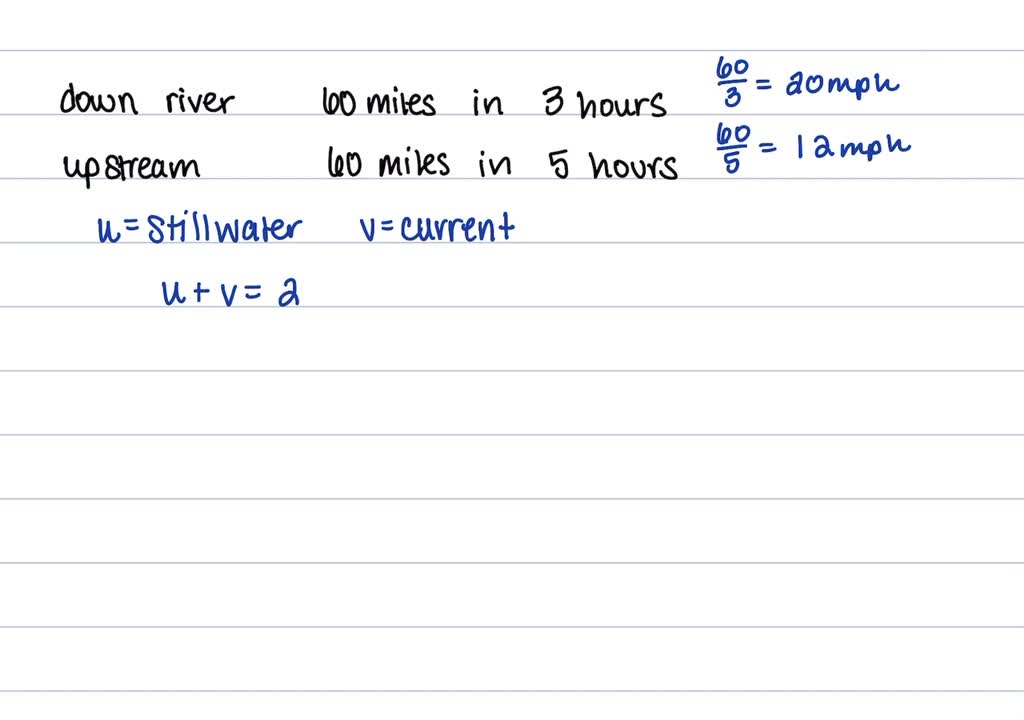 down river 60 miles in 3 hours 60/3 = 20mph
upstream 60 miles in 5 hours 60/5 = 12mph
u = stillwater v = current
u + v = 2